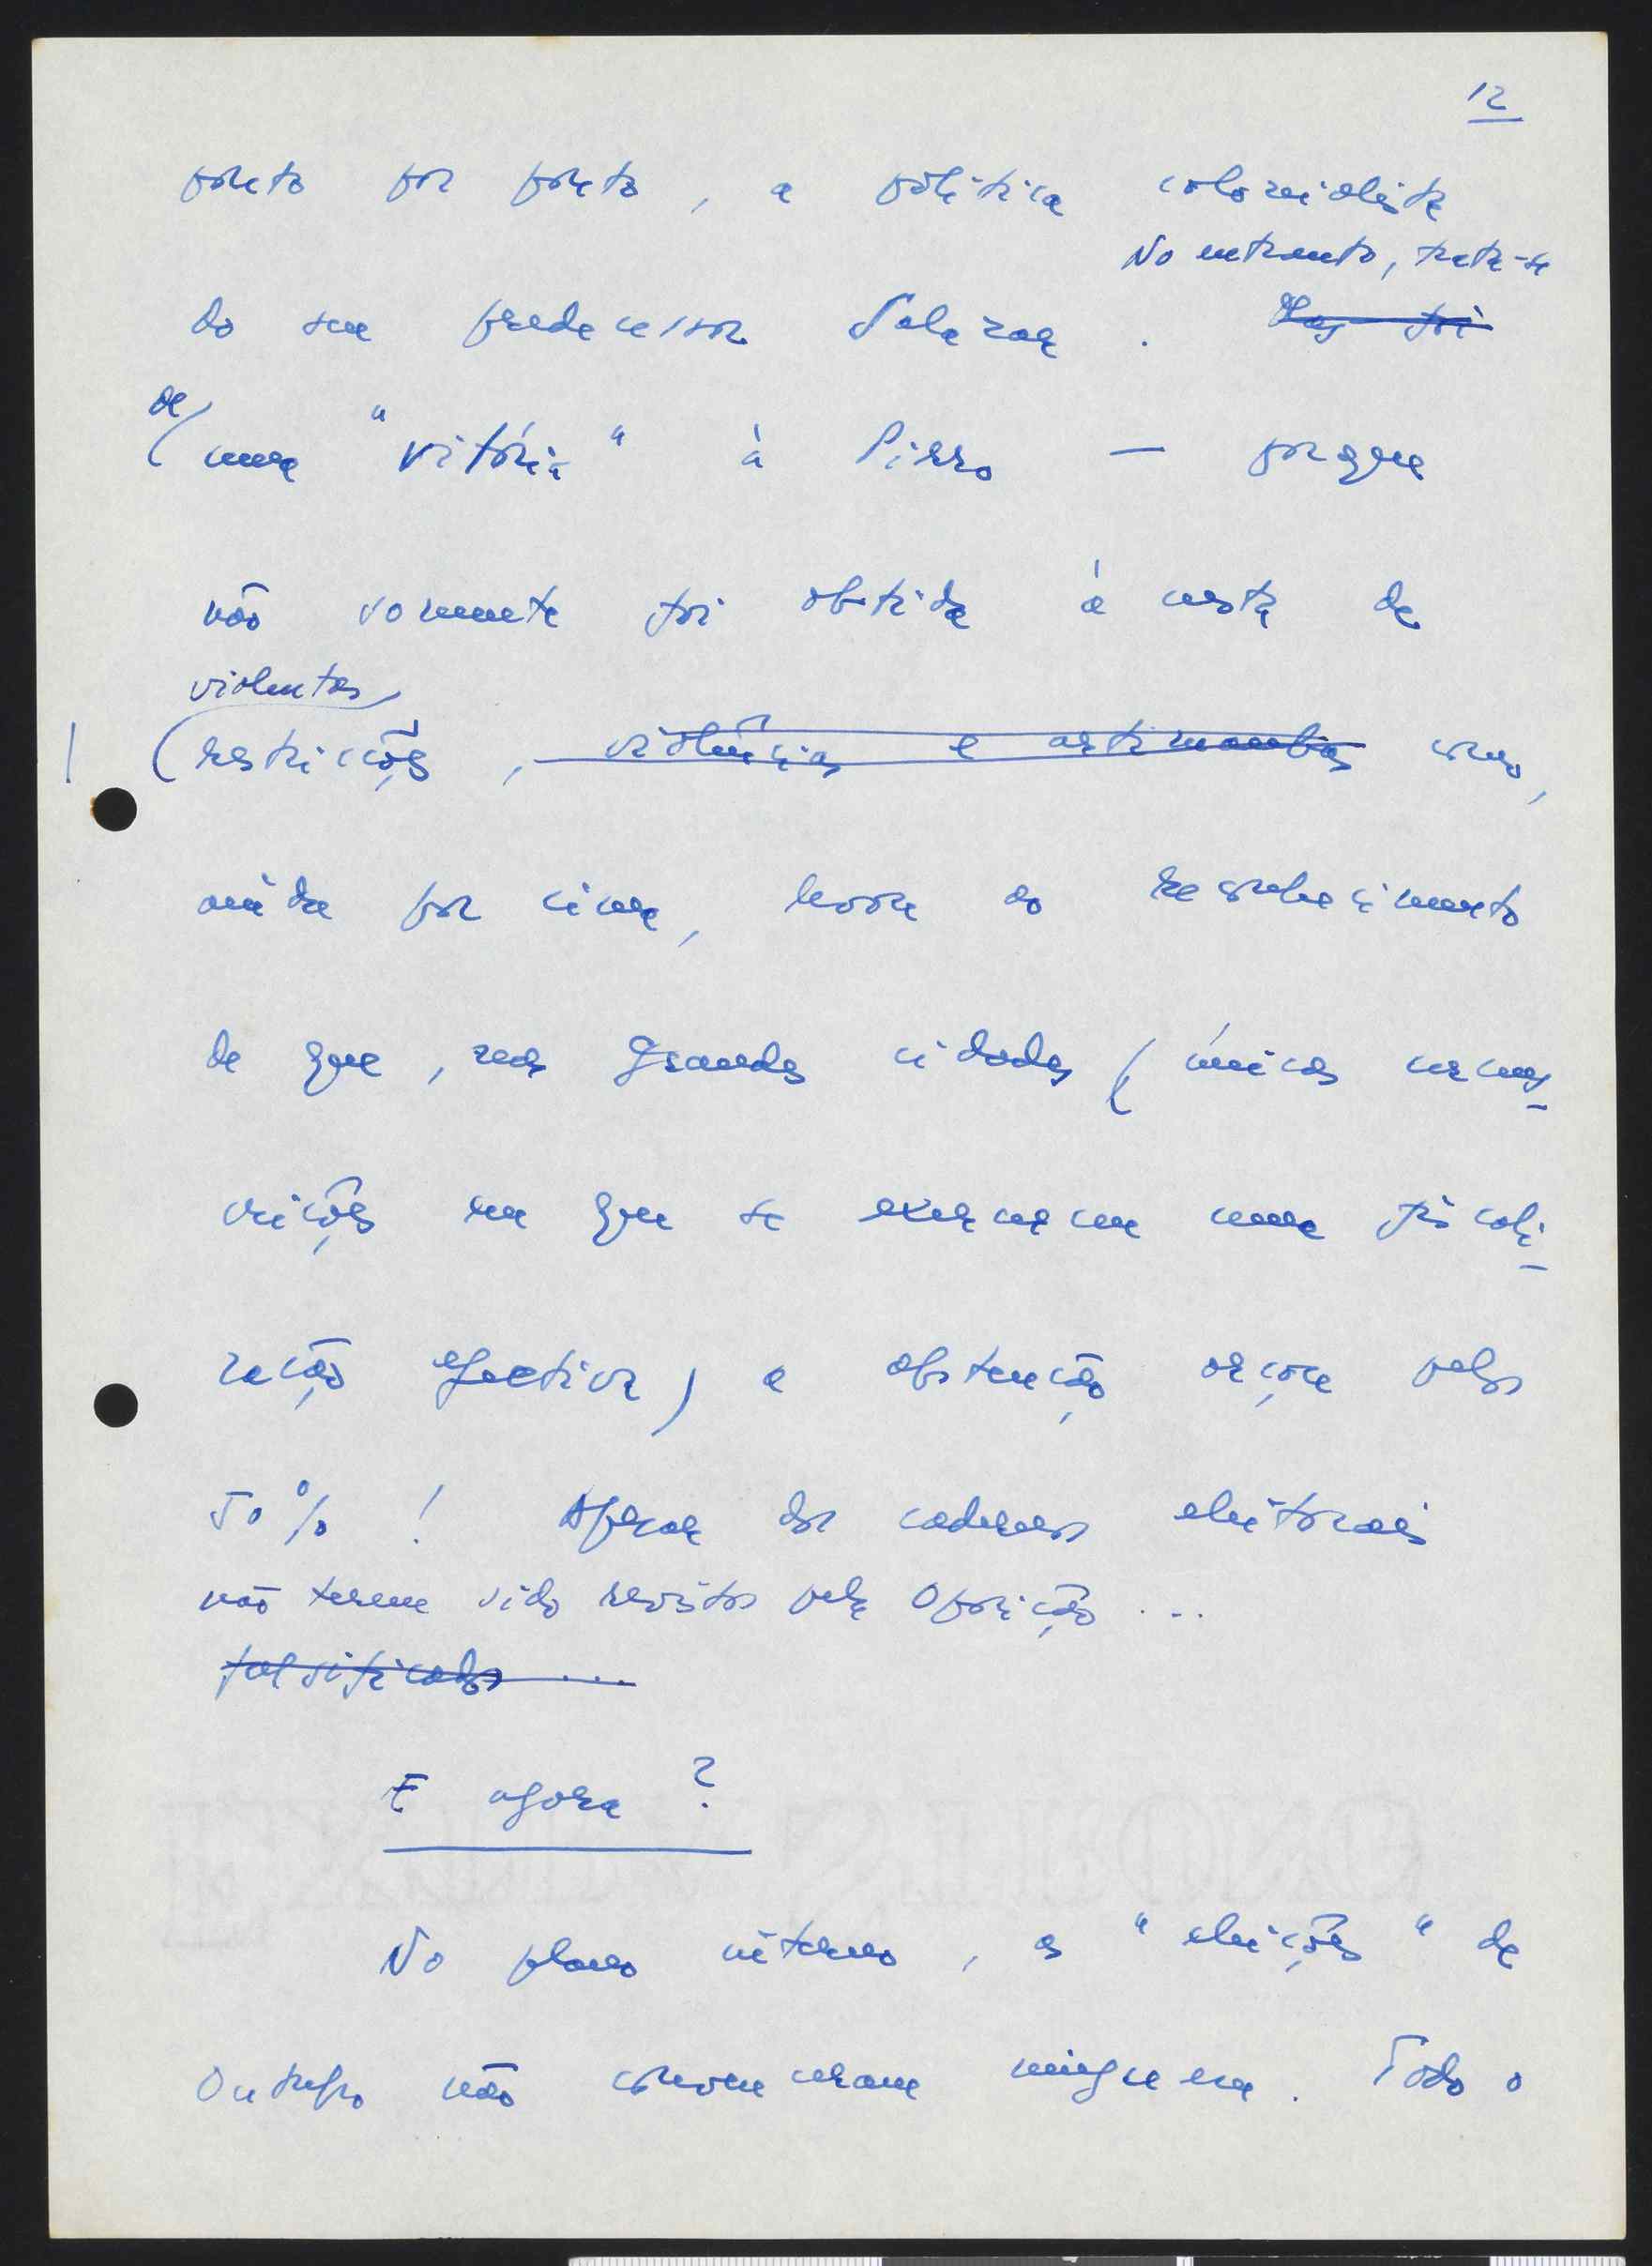 12
ponto por ponto, a política colonialista
No entanto, trata-se
do seu predecessor Salazar. Mas foi
de
uma "vitória" à Pirro — porque
não somente foi obtida à custa de
violentas
restrições, violências e artimanhas como,
ainda por cima, houve o reconhecimento
de que, nas grandes cidades (únicas circuns-
crições em que se exerceu uma fiscali-
zação efectiva) a abstenção orçou pelos
50%! Apesar dos cadernos eleitorais
não terem sido revistos pela Oposição...
falsificados ...
E agora?
No plano interno, as "eleições" de
Outubro não convenceram ninguem. Todo o